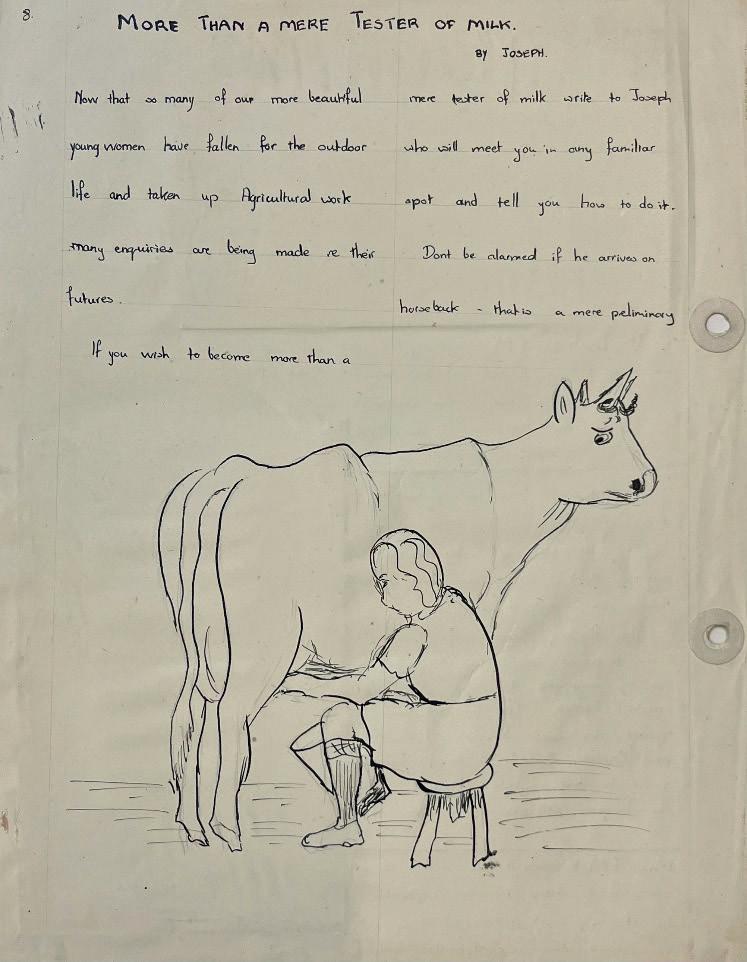 8.
MORE THAN A MERE TESTER OF MILK.
BY JOSEPH.
Now that so many of our more beautiful
young women have fallen for the outdoor
life and taken up Agricultural work
many enquiries are being made re their
futures.
If you wish to become more than a
mere tester of milk write to Joseph
who will meet you in any familiar
spot and tell you how to do it.
Dont be alarmed if he arrives on
horseback - that is a mere peliminary